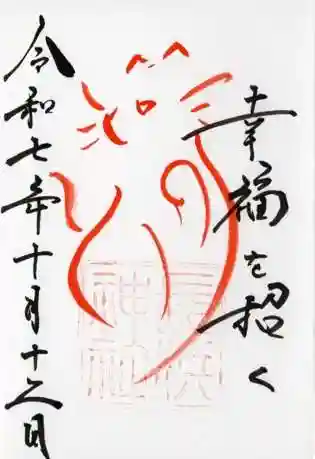 幸福を招く
神社
令和七年十月十二日